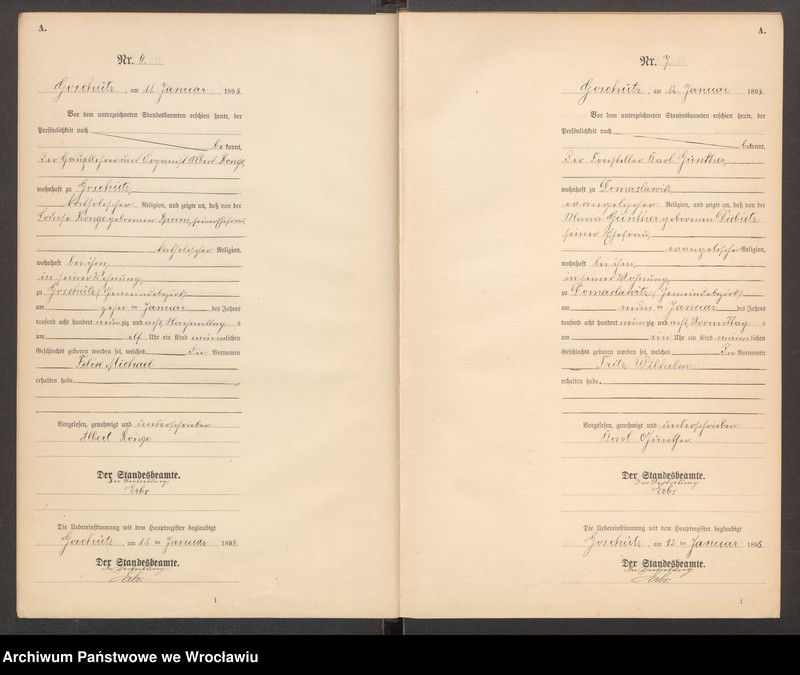 A.
Nr. 6.
Goschütz, am 11. Januar 1898.
Vor dem unterzeichneten Standesbeamten erschien heute, der
Persönlichkeit nach
bekannt,
der Hauptlehrer und Organist Albert Ronge,
wohnhaft zu Goschütz,
katholischer Religion, und zeigte an, daß von der
Louise Ronge geborenen seiner Ehefrau,
katholischer Religion,
wohnhaft bei ihm,
in seiner Wohnung,
zu Goschütz, Gemeindebezirk,
am zehn ten Januar des Jahres
tausend acht hundert neunzig und acht Nachmittag s
um elf Uhr ein Kind männlichen
Geschlechts geboren worden sei, welches die Vornamen
Felix Michael
erhalten habe.
Vorgelesen, genehmigt und unterschrieben
Albert Ronge
Der Standesbeamte.
In Vertretung
Erbs
Die Uebereinstimmung mit dem Hauptregister beglaubigt
Goschütz, am 11 ten Januar 1898.
Der Standesbeamte.
In Vertretung
Erbs.
1
A.
Nr. 7.
Goschütz, am 12. Januar 1898.
Vor dem unterzeichneten Standesbeamten erschien heute, der
Persönlichkeit nach
bekannt,
der Karl Günther,
wohnhaft zu Domaslawitz,
evangelischer Religion, und zeigte an, daß von der
Maria Günther geborenen
seiner Ehefrau,
evangelischer Religion,
wohnhaft bei ihm,
in seiner Wohnung,
zu Domaslawitz, Gemeindebezirk,
am neun ten Januar des Jahres
tausend acht hundert neunzig und acht Vormittag s
um ein Uhr ein Kind männlichen
Geschlechts geboren worden sei, welches die Vornamen
Fritz Wilhelm
erhalten habe.
Vorgelesen, genehmigt und unterschrieben
Karl Günther
Der Standesbeamte.
In Vertretung
Erbs
Die Uebereinstimmung mit dem Hauptregister beglaubigt
Goschütz, am 12 ten Januar 1898.
Der Standesbeamte.
In Vertretung
Erbs.
1
Archiwum Państwowe we Wrocławiu